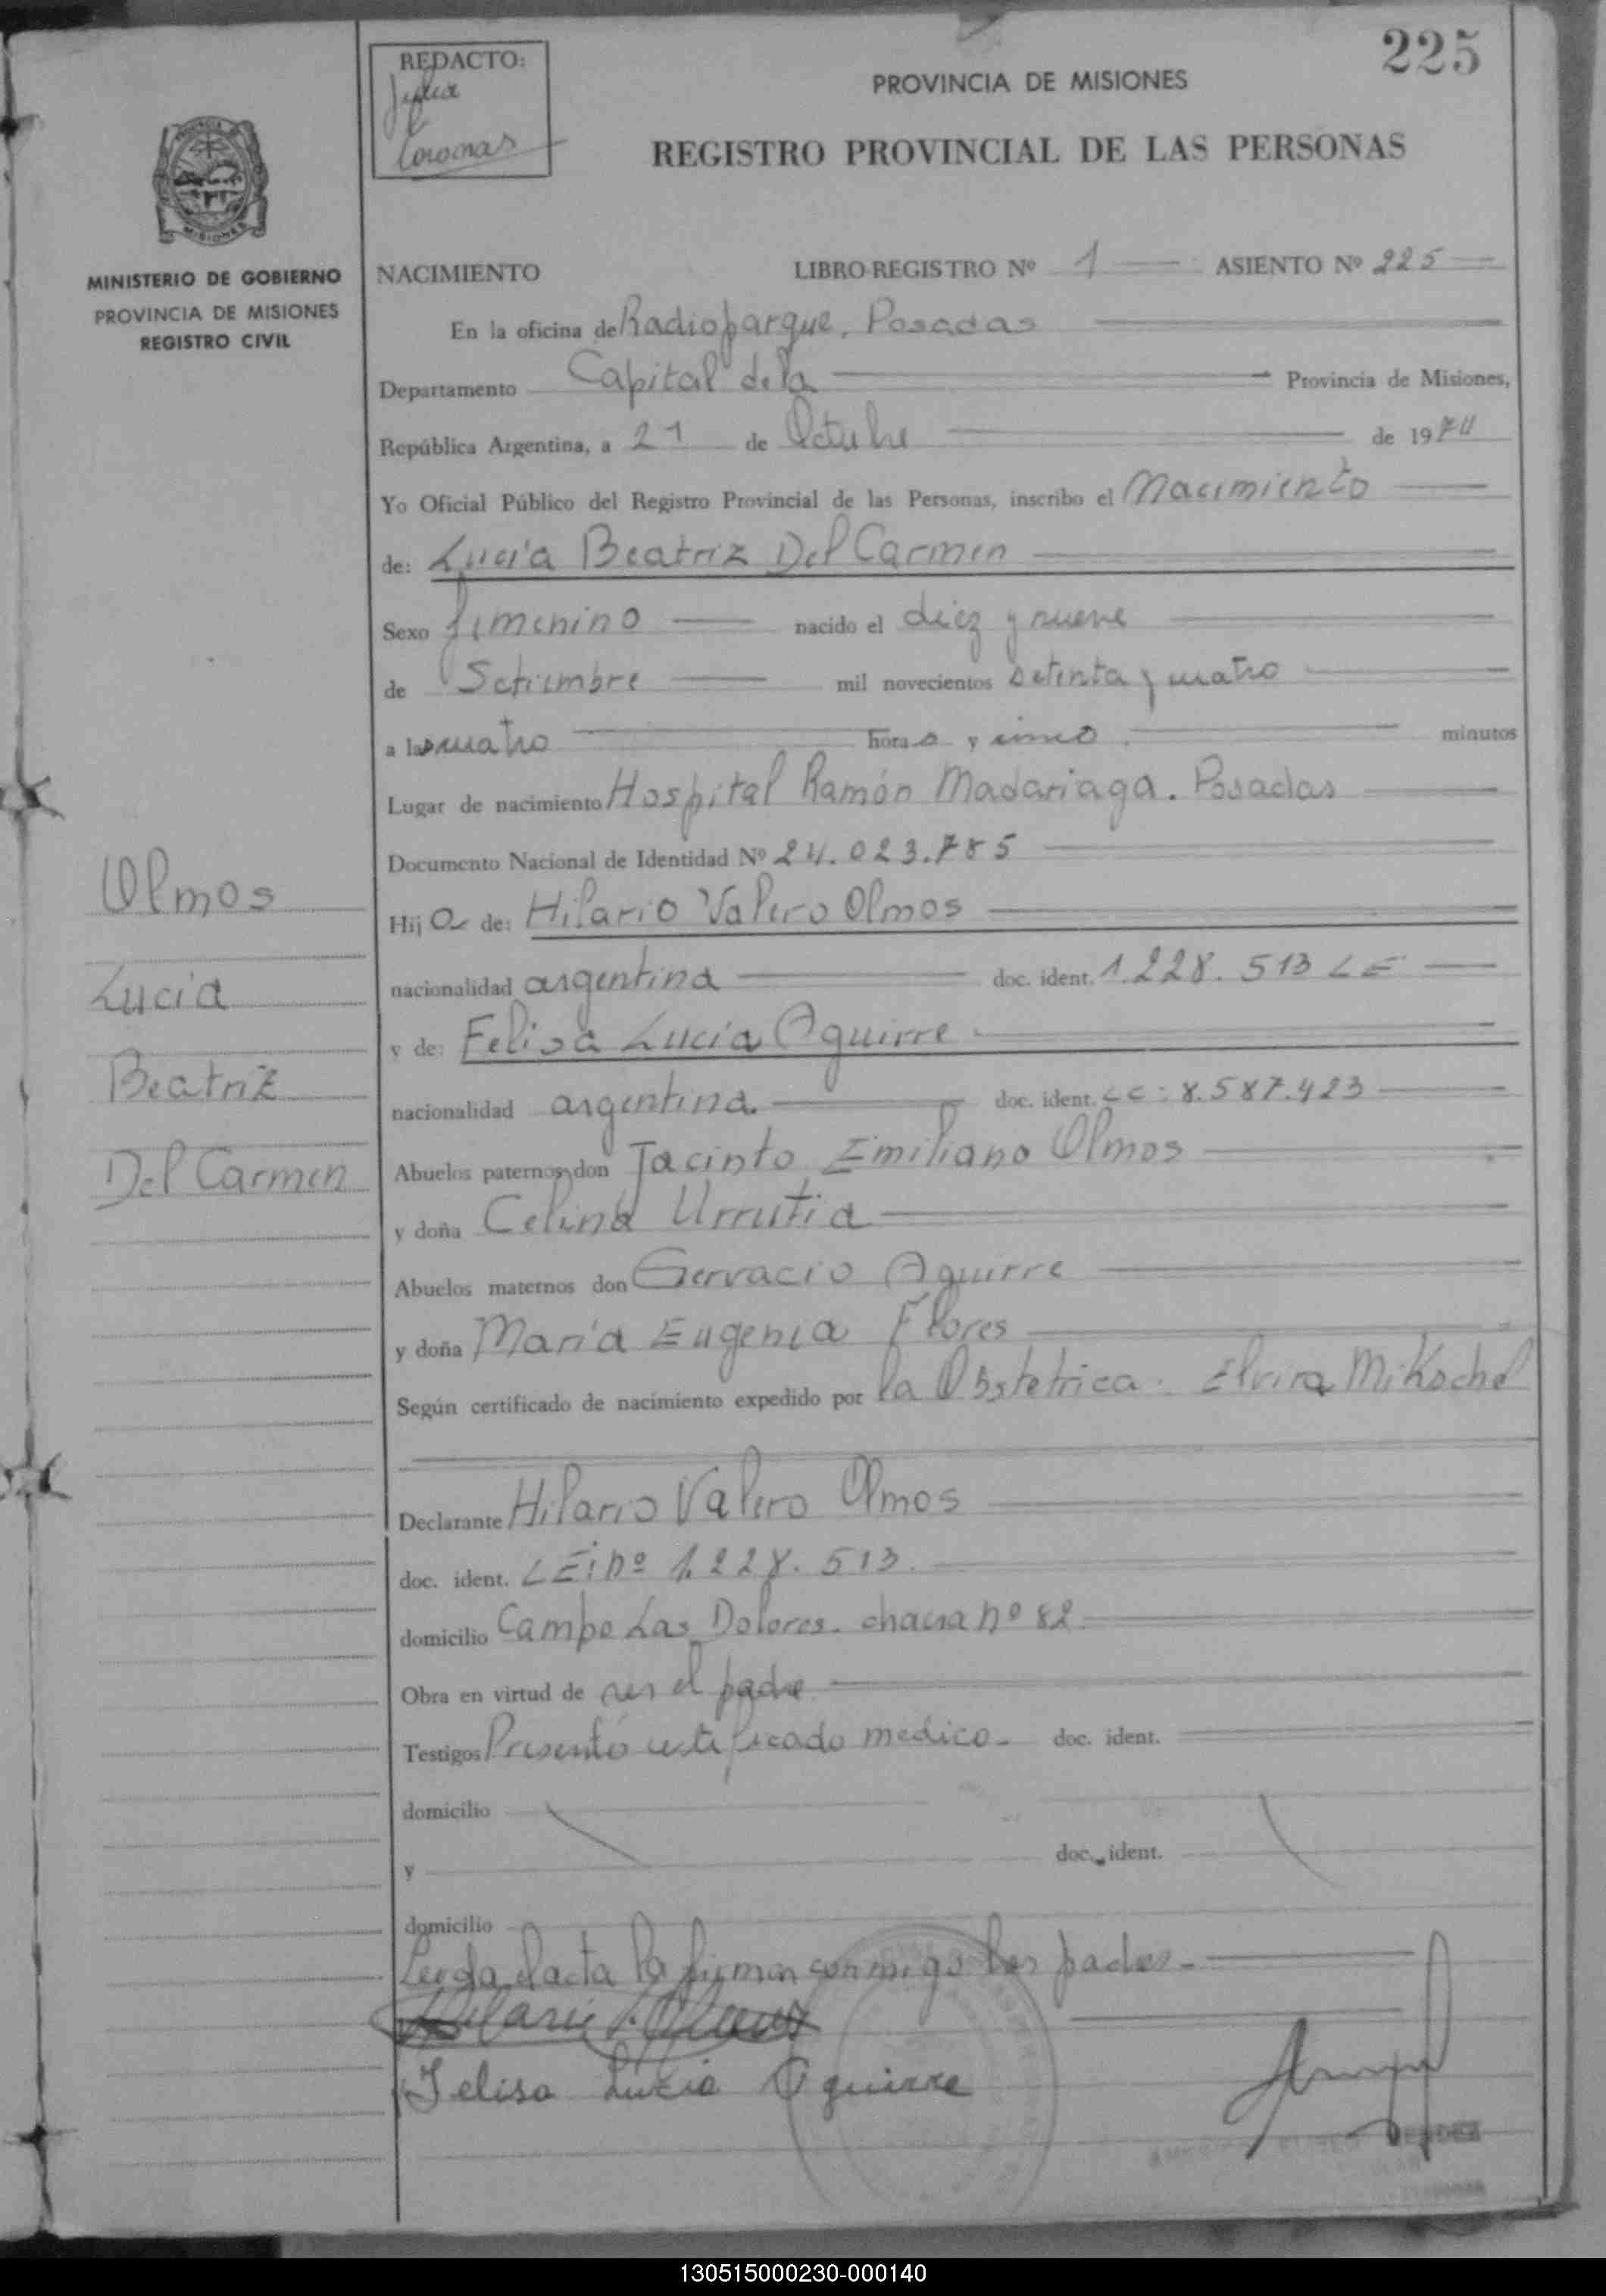 225
REDACTO:
Julia
Coronas
PROVINCIA DE MISIONES
REGISTRO PROVINCIAL DE LAS PERSONAS
MISIONES
MINISTERIO DE GOBIERNO
PROVINCIA DE MISIONES
REGISTRO CIVIL
NACIMIENTO LIBRO-REGISTRO Nº 1 ASIENTO Nº 225
En la oficina de Radioparque. Posadas
Departamento Capital de la Provincia de Misiones,
República Argentina, a 21 de Octubre de 1974
Yo Oficial Público del Registro Provincial de las Personas, inscribo el Nacimiento
de: Lucía Beatriz Del Carmen
Sexo femenino nacido el diez y nueve
de Setiembre mil novecientos setenta y cuatro
a las cuatro horas y cinco minutos
Lugar de nacimiento Hospital Ramón Madariaga. Posadas
Documento Nacional de Identidad Nº 24.023.785
Hija de: Hilario Valero Olmos
nacionalidad argentina doc. ident. 1.228.513 LE
y de: Felisa Lucia Aguirre
nacionalidad argentina. doc. ident. LC: 8.587.423
Abuelos paternos don Jacinto Emiliano Olmos
y doña Celina Urrutia
Abuelos maternos don Gervacio Aguirre
y doña María Eugenia Flores
Según certificado de nacimiento expedido por la Obstetrica. Elvira
Olmos
Lucía
Beatriz
Del Carmen
Declarante Hilario Valero Olmos
doc. ident. LE: nº 1.228.513.
domicilio Campo Las Dolores. chacra nº 82
Obra en virtud de ser el padre
Testigos Presentó certificado medico. doc. ident.
domicilio
y doc. ident.
domicilio
Leida el acta la firman conmigo los padres.
Hilario V. Olmos
Felisa Lucia Aguirre
130515000230-000140